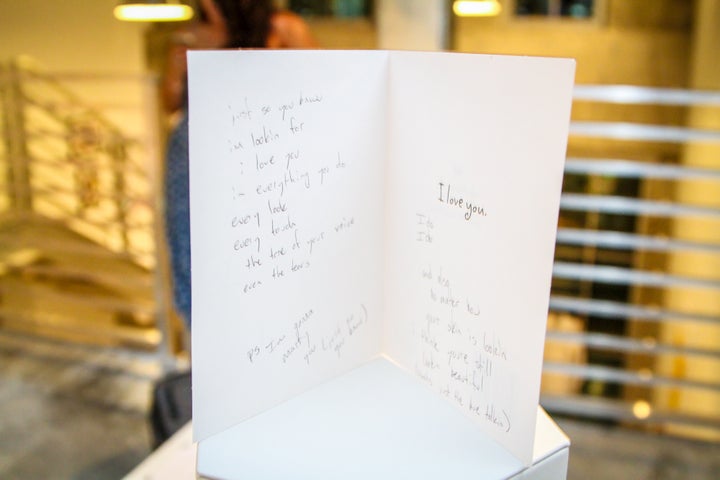 just so you know
im lookin for
i love you
in everything you do
every look
every touch
the tone of your voice
even the tears
ps I'm gonna
marry
you (just so
you know)
I love you.
I do
I do
and dog
no matter how
your skin is lookin
i think you're still
lookin beautiful
not the love talkin)